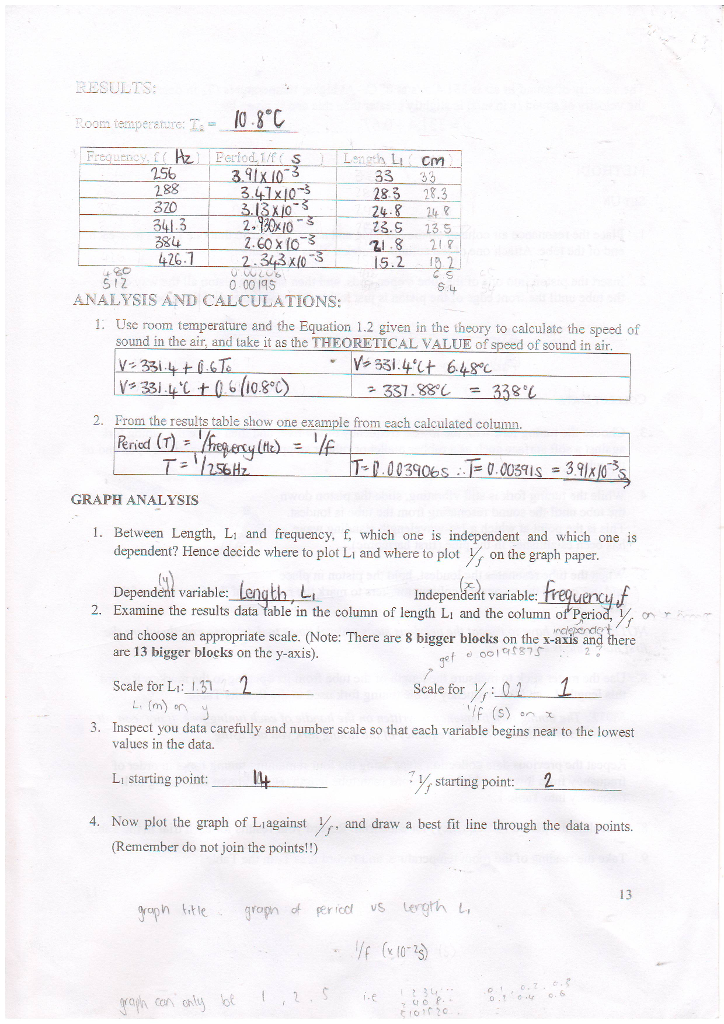 RESULTS:
Room temperature: T₀ = 10.8°C
Frequency, f ( Hz ) Period, 1/f ( s ) Length L₁ ( cm )
256 3.91 x 10⁻³ 33 33
288 3.47 x 10⁻³ 28.3 28.3
320 3.13 x 10⁻³ 24.8 24 8
341.3 2.930 x 10⁻³ 23.5 23 5
384 2.60 x 10⁻³ 21.8 21 8
426.7 2.343 x 10⁻³ 15.2
480
512 0.00195 5.4
ANALYSIS AND CALCULATIONS:
1. Use room temperature and the Equation 1.2 given in the theory to calculate the speed of
sound in the air, and take it as the THEORETICAL VALUE of speed of sound in air.
V = 331.4 + 0.6T₀ V= 331.4°C + 6.48°C
V= 331.4°C + 0.6(10.8°C) = 337.88°C = 338°C
2. From the results table show one example from each calculated column.
Period (T) = 1/frequency (Hz) = 1/f
T = 1/256Hz T= 0.003906s ∴ T= 0.00391s = 3.91x10⁻³s
GRAPH ANALYSIS
1. Between Length, L₁ and frequency, f, which one is independent and which one is
dependent? Hence decide where to plot L₁ and where to plot 1/f on the graph paper.
(y) (x)
Dependent variable: Length, L₁ Independent variable: frequency, f
2. Examine the results data table in the column of length L₁ and the column of Period, 1/f on x
independent
and choose an appropriate scale. (Note: There are 8 bigger blocks on the x-axis and there
are 13 bigger blocks on the y-axis). get 0 00195875 ∴ 2?
Scale for L₁: 1.37 2 Scale for 1/f : 0.2 1
L₁ (m) on y 1/f (s) on x
3. Inspect you data carefully and number scale so that each variable begins near to the lowest
values in the data.
L₁ starting point: 14 ? 1/f starting point: 2
4. Now plot the graph of L₁against 1/f, and draw a best fit line through the data points.
(Remember do not join the points!!)
13
graph title graph of period vs length L₁
1/f (x10⁻²s)
graph can only be 1, 2, 5 i.e 1 2 3 4 ...